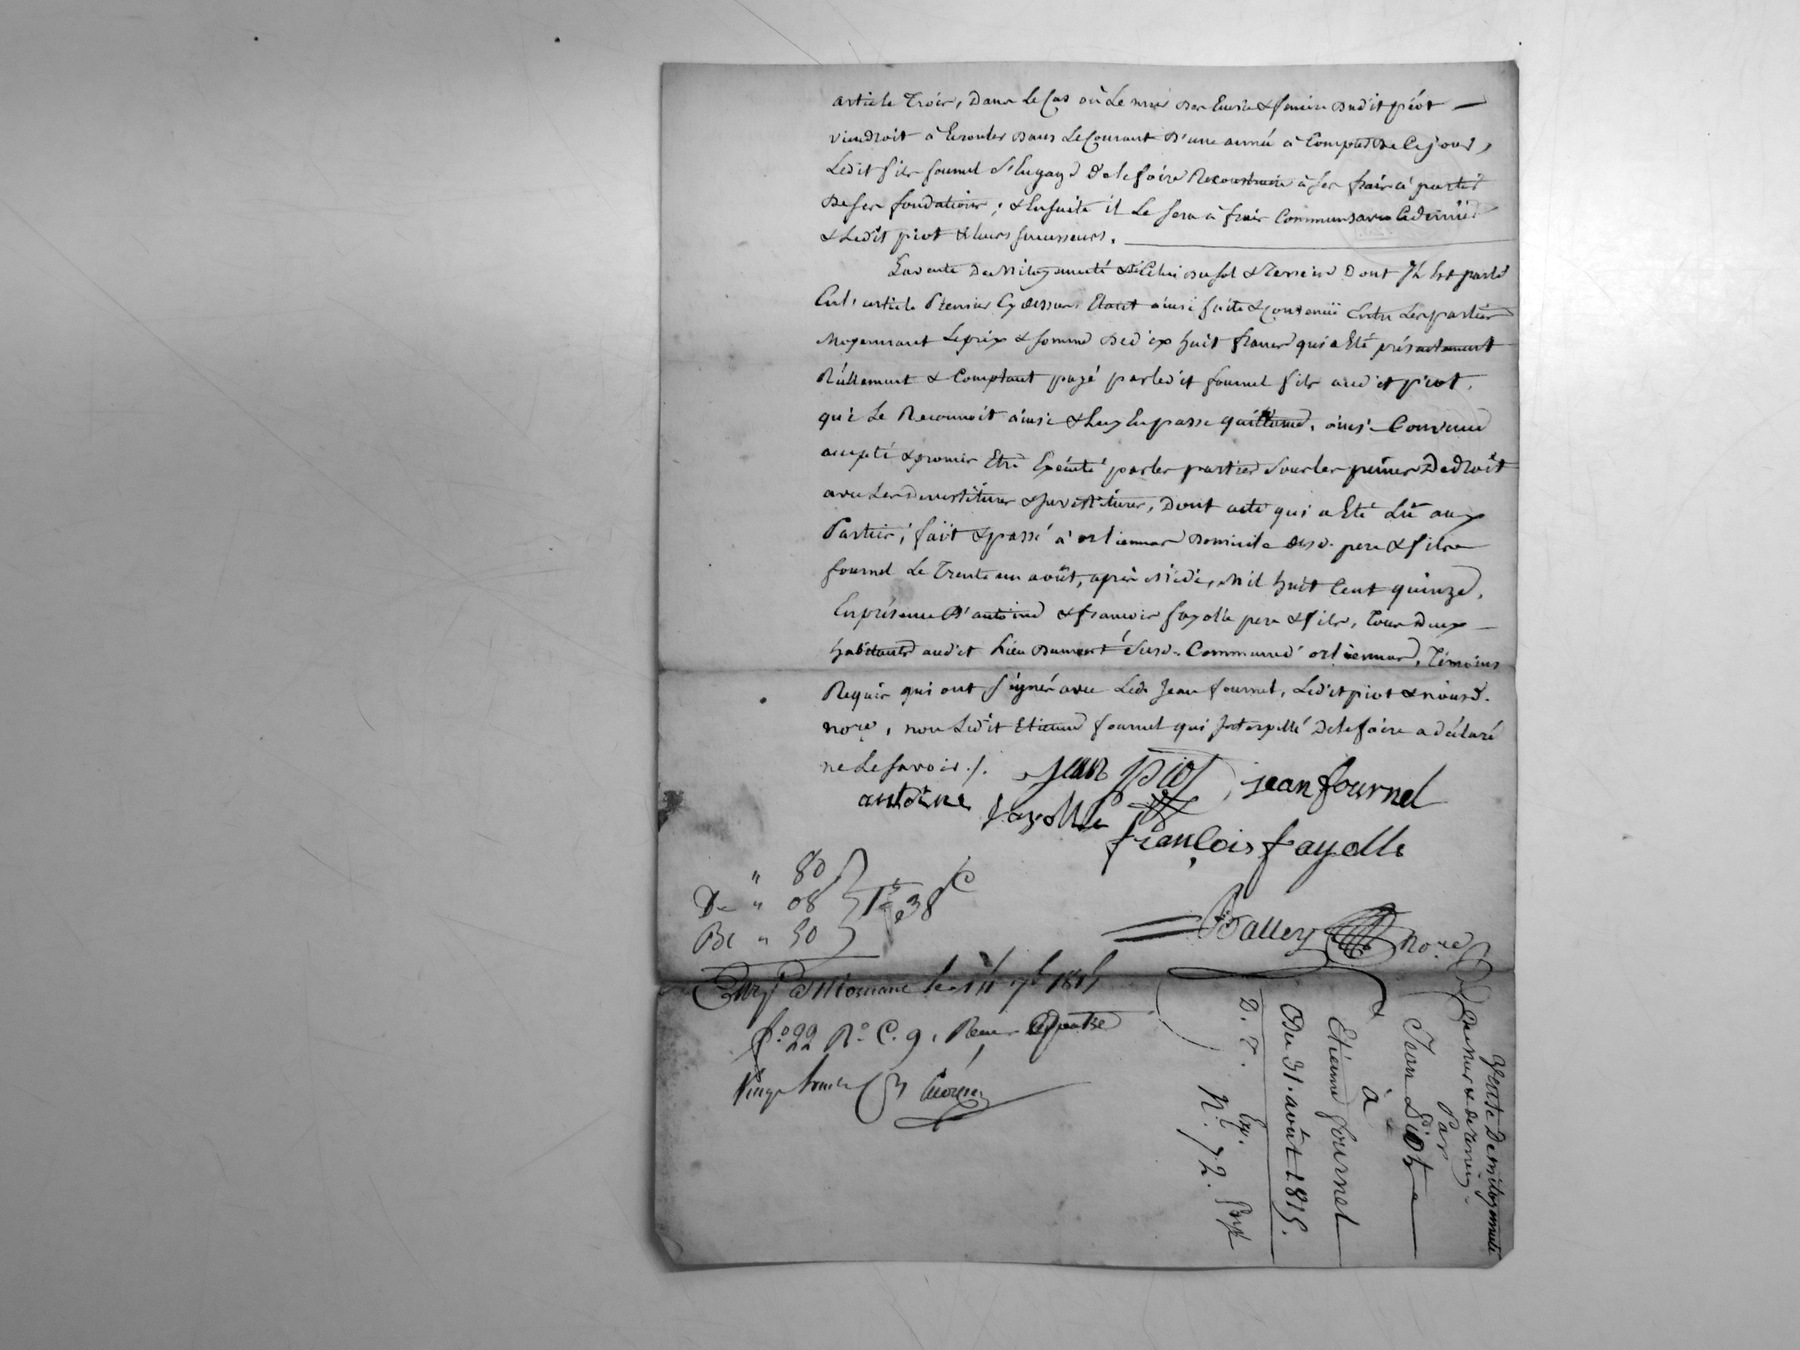 article Trois, Dans le Cas où Le mur des Ecurie & feniere dudit piot
viendroit à Ecrouler dans Le Courant d'une année à Compter de Ce jour,
Ledit fils fournel S'Engage de le faire Reconstruire à ses frais à partir
de ses fondations; & Ensuite il Le sera à frais Communs avec Ce dernier
& Ledit piot & leurs successeurs.
La vente de Mitoyenneté & Celui du sol & Terrein Dont Il Est parlé
En l'article Premier Cy dessus, Etant ainsi faite & Convenüe Entre Les parties
Moyennant Le prix & somme de dix huit francs qui a Eté présentement
Réellement & Comptant payé par ledit fournel fils audit piot,
qui Le Reconnoit ainsi & Luy En passe quittance, ainsi Convenu
accepté & promis Etre Exécuté par les parties Sous les peines De droit
avec Les devestitures & Investitures, Dont acte qui a Eté Lû aux
Parties; fait & passé à domicile desd. pere & fils
fournel Le Trente un août, après Midi, Mil huit Cent quinze,
En présence D'antoine & francois fayolle pere & fils, Tous Deux
habitants audit Lieu Susd. Commune Témoins
Requis qui ont Signés avec Led. Jean fournel, Ledit piot & nousd.
nore, non Ledit Etienne fournel qui Interpellé De le faire a déclaré
ne Le savoir ./.
jean piot jean fournel
antoine fayolle
françois fayolle
" 80
De " 08 1f 38c
Be " 50
Balley nore
Enregt le 14 7bre 1815
fo 22 Ro C. 9. Recu quatre
Vingt
Vente De mitoyenneté
De mur & de terrein
Par
Jean Piot
à
Etienne fournel
Du 31. août 1815.
D. T. Exp.
N°. 72.